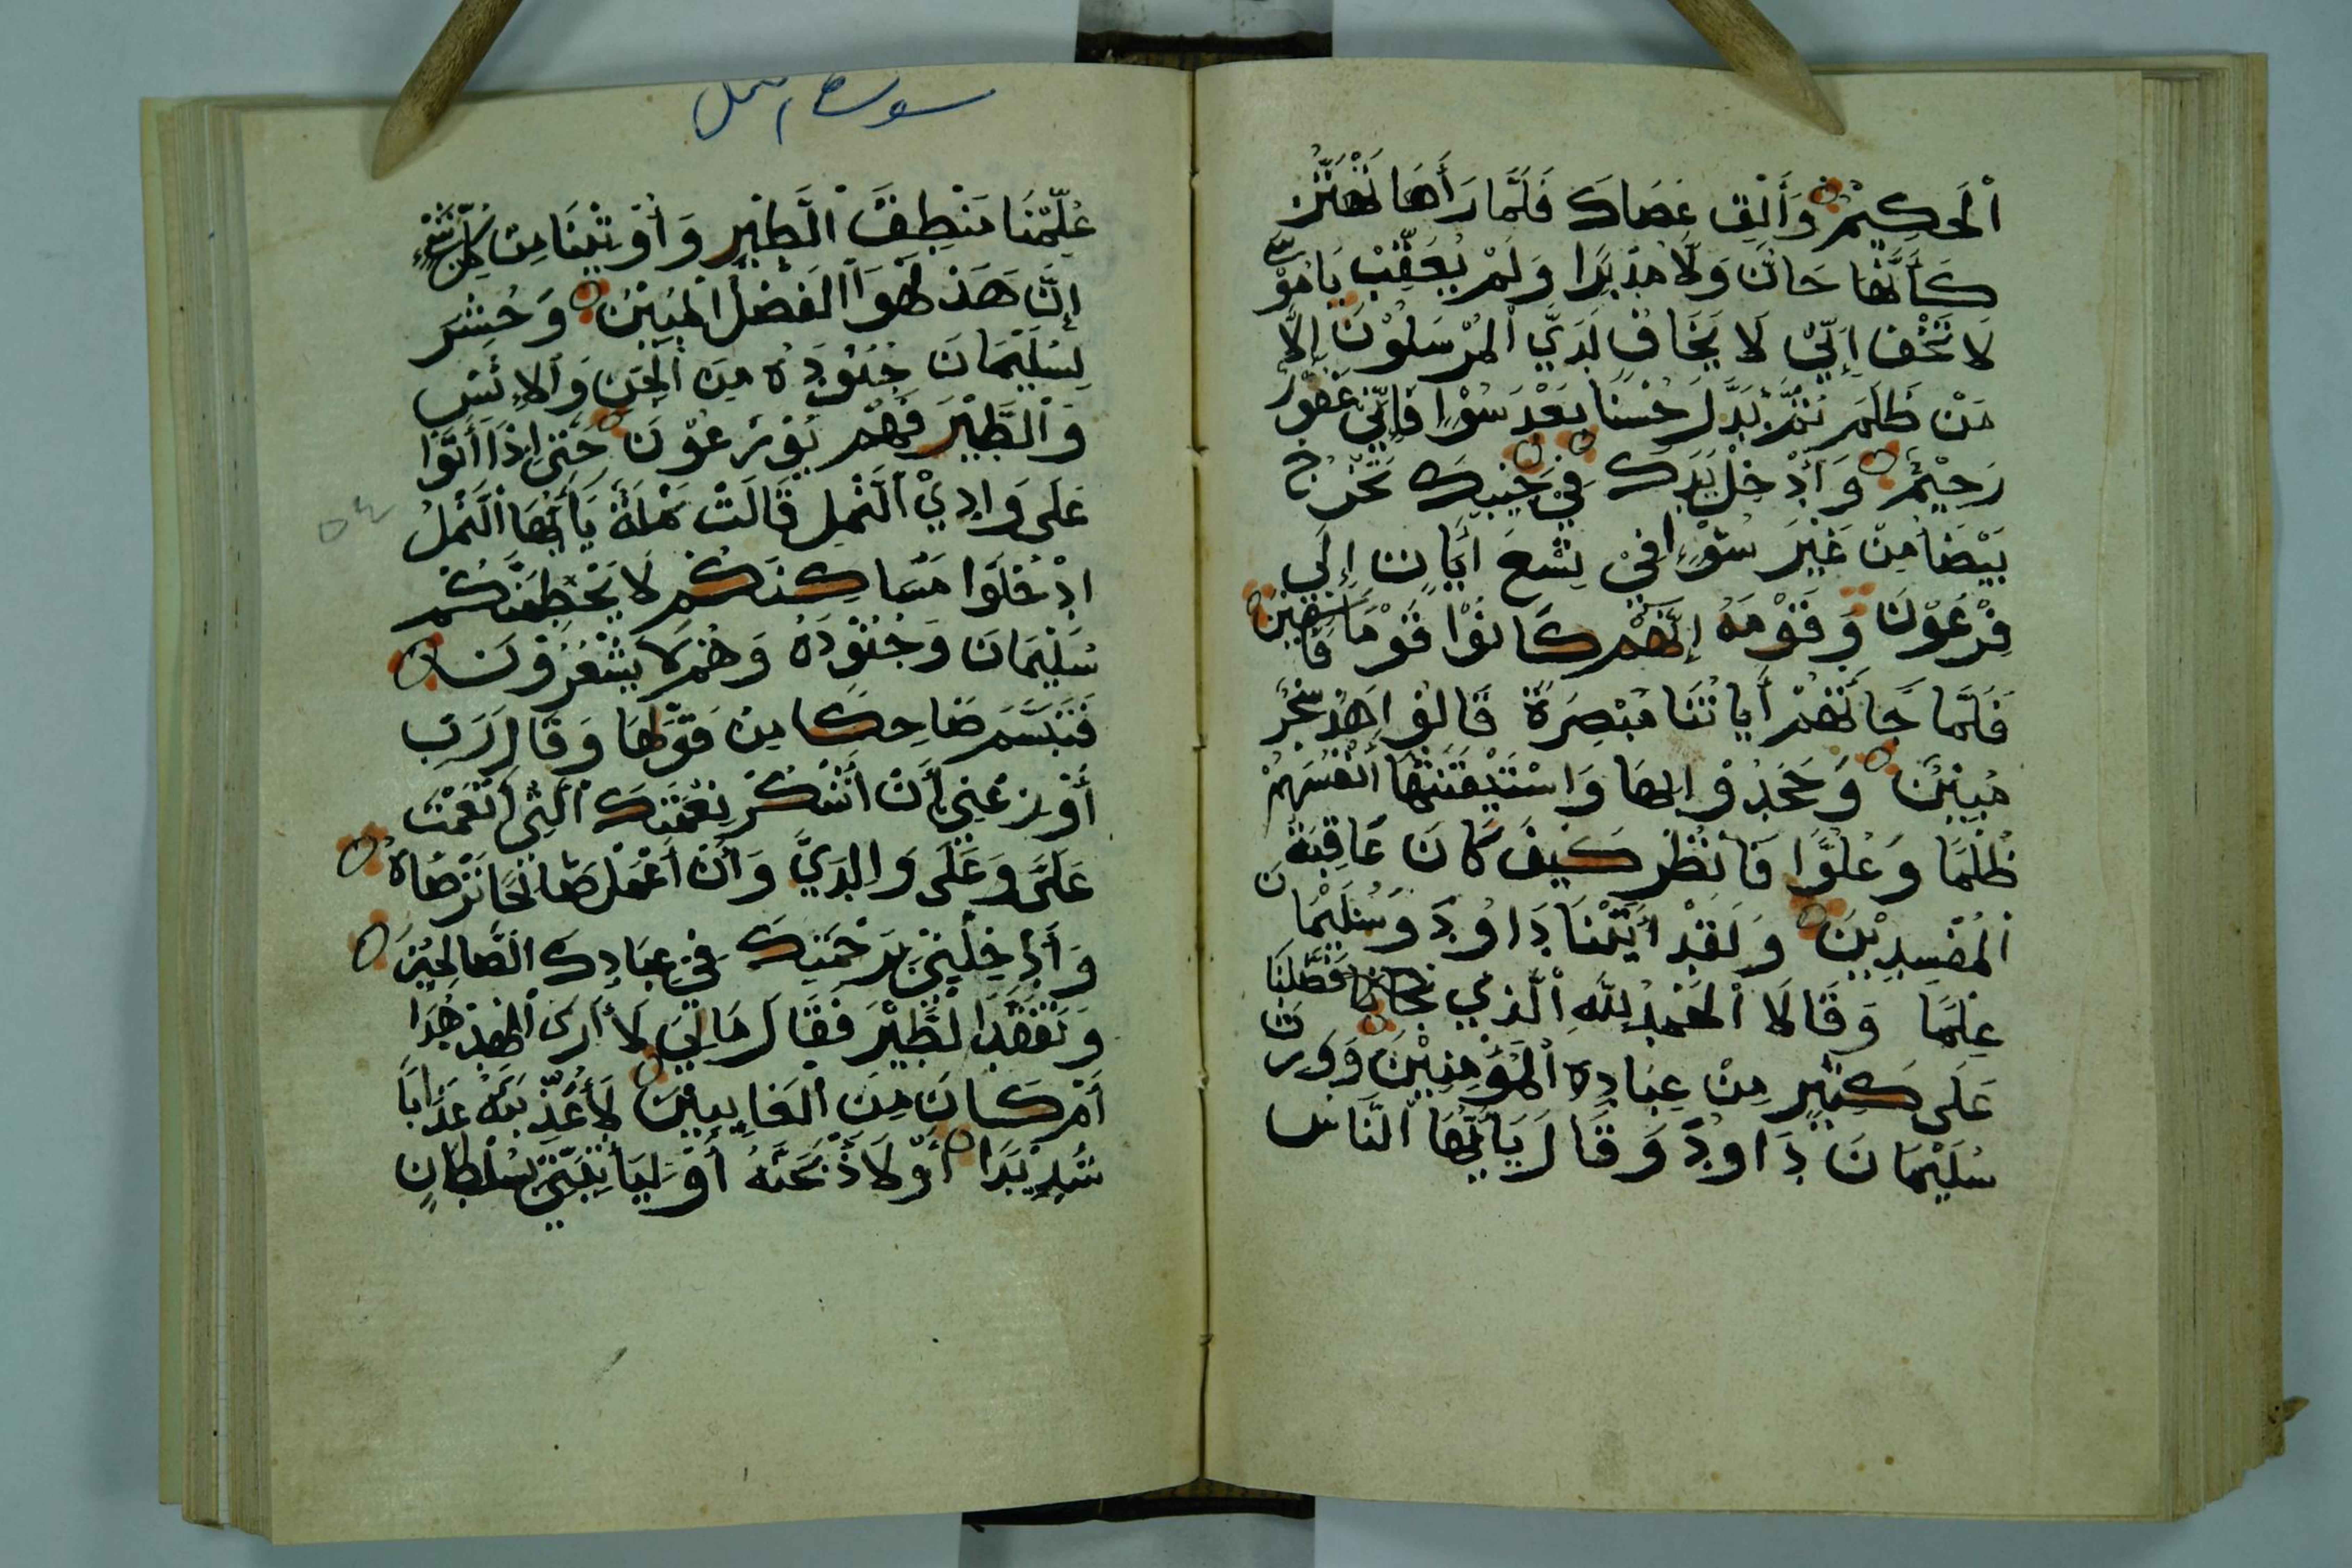 اْلحَكِيْمُ وَأَلْقِ عَصَاكَ فَلَمَّا رَأَهَا تَهْتَزُّ
كَأَنَّهَا جَانٌّ وَلَّا مُدْبِرًا وَلَمْ يُعَقِّبْ يَا مُوْسَى
لَا تَخَفْ إِنِّيْ لَا يَخَافُ لَدَيَّ اْلمُرْسَلُوْنَ إِلَّا
مَنْ ظَلَمَ ثُمَّ بَدَّلَ حُسْنًا بَعْدَ سُوْا فَإِنِّيْ غَفُوْرٌ
رَحِيْمٌ وَأَدْخِلْ يَدَكَ فِيْ جَيْبِكَ تَخْرُجْ
بَيْضَا مِنْ غَيْرِ سُوْءٍ فِيْ تِسْعِ ايَاتٍ إِلَى
فِرْعَوْنَ وَقَوْمِهِ إِنَّهُمْ كَانُوْا قَوْمًا فَاسِقِيْنَ
فَلَمَّا جَاتْهُمْ أَيَاتُنَا مُبْصِرَةً قَالُوْا هَذَ سِحْرٌ
مُبِيْنٌ وَجَحَدُوْا بِهَا وَاسْتَيْقَنَتْهَا أَنْفُسُهُمْ
ظُلْمًا وَعُلُوًّا فَانْظُرْ كَيْفَ كَانَ عَاقِبَةُ
اْلمُفْسِدِيْنَ وَلَقَدْ اتَيْنَا دَاوُودَ وَسُلَيْمَانَ
عِلْمًا وَقَالَا اْلحَمْدُ لِلَّهِ اْلَّذِي فَضَّلَنَا
عَلَى كَثِيْرٍ مِنْ عِبَادِهِ اْلمُؤْمِنِيْنَ وَوَرِثَ
سُلَيْمَانَ دَاوُودَ وَقَالَ يَاأَيُّهَا النَّاسُ
سورة نمل
عُلِّمْنَا مَنْطِقَ الطَّيْرِ وَأُوْتِيْنَا مِنْ كُلِّ شَيْءٍ
إِنَّ هَذَ لَهُوَ اْلفَضْلُ اْلمُبِيْنُ وَحُشِرَ
لِسُلَيْمَانَ جُنُوْدُهُ مِنَ اْلجِنِّ وَاْلاِنْسِ
وَالطَّيْرِ فَهُمْ يُوْزَعُوْنَ حَتَى إِذَا أَتَوْا
عَلَى وَادِيْ النَّمْلِ قَالَتْ نَمْلَةٌ يَاأَيُّهَا النَّمْلُ
ادْخُلُوا مَسَاكِنَكُمْ لَا يَحْطِمَنَّكُمْ
سُلَيْمَانَ وَجُنُوْدُهُ وَهُمْ لَا يَشْعُرُوْنَ
فَتَبَسَّمَ ضَاحِكًا مِنْ قَوْلِهَا وَقَالَ رَبِّ
أَوْزِعْنِي أَنْ أَشْكُرَ نِعْمَتَكَ الَّتِي أَنْعَمْتَ
عَلَيَّ وَعَلَى وَالِدَيَّ وَأَنْ أَعْمَلَ صَالِحًا تَرْضَاهُ
وَأَدْخِلْنِيْ بِرَحْمَتِكَ فِيْ عِبَادِكَ الصَّالِحِيْنَ
وَتَفَقَّدَ الطَّيْرَ فَقَالَ مَالِيَ لَا أَرَى اْلهُدْهُدَا
أَمْ كَانَ مِنَ اْلغَايِبِيْنَ لَأُعَذِّبَنَّهُ عَذَابًا
شَدِيْدًا أَوْ لَاَذْبَحَنَّهُ أَوْ لَيَأْتِيَنِّيْ بِسُلْطَانٍ
٥٤